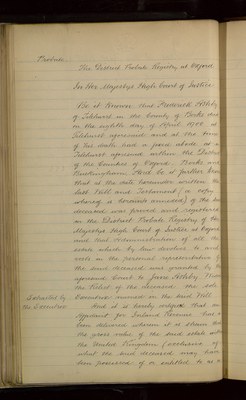 Probate.
The District Probate Registry at Oxford
In His Majestys High Court of Justice
Be it known that Frederick Ashby
of Tilehurst in the County of Berks died
on the eighth day of April 1909 at
Tilehurst aforesaid and at the time
of his death had a fixed abode at
Tilehurst aforesaid within the District
of the Counties of Oxford Berks and
Buckingham And be it further known
that at the date hereunder written the
last Will and Testament (a copy
whereof is hereunto annexed) of the said
deceased was proved and registered
in the District Probate Registry of His
Majestys High Court of Justice at Oxford
and that administration of all the
estate which by law devolves to and
vests in the personal representative of
the said deceased was granted by the
aforesaid Court to Jane Ashby
the Relict of the deceased the sole
Executrix named in the said Will
And it is hereby certified that an
Affidavit for Inland Revenue has
been delivered wherein it is shewn that
the gross value of the said estate in
the United Kingdom (exclusive of
what the said deceased may have
been possessed of or entitled to as a
the Executrix